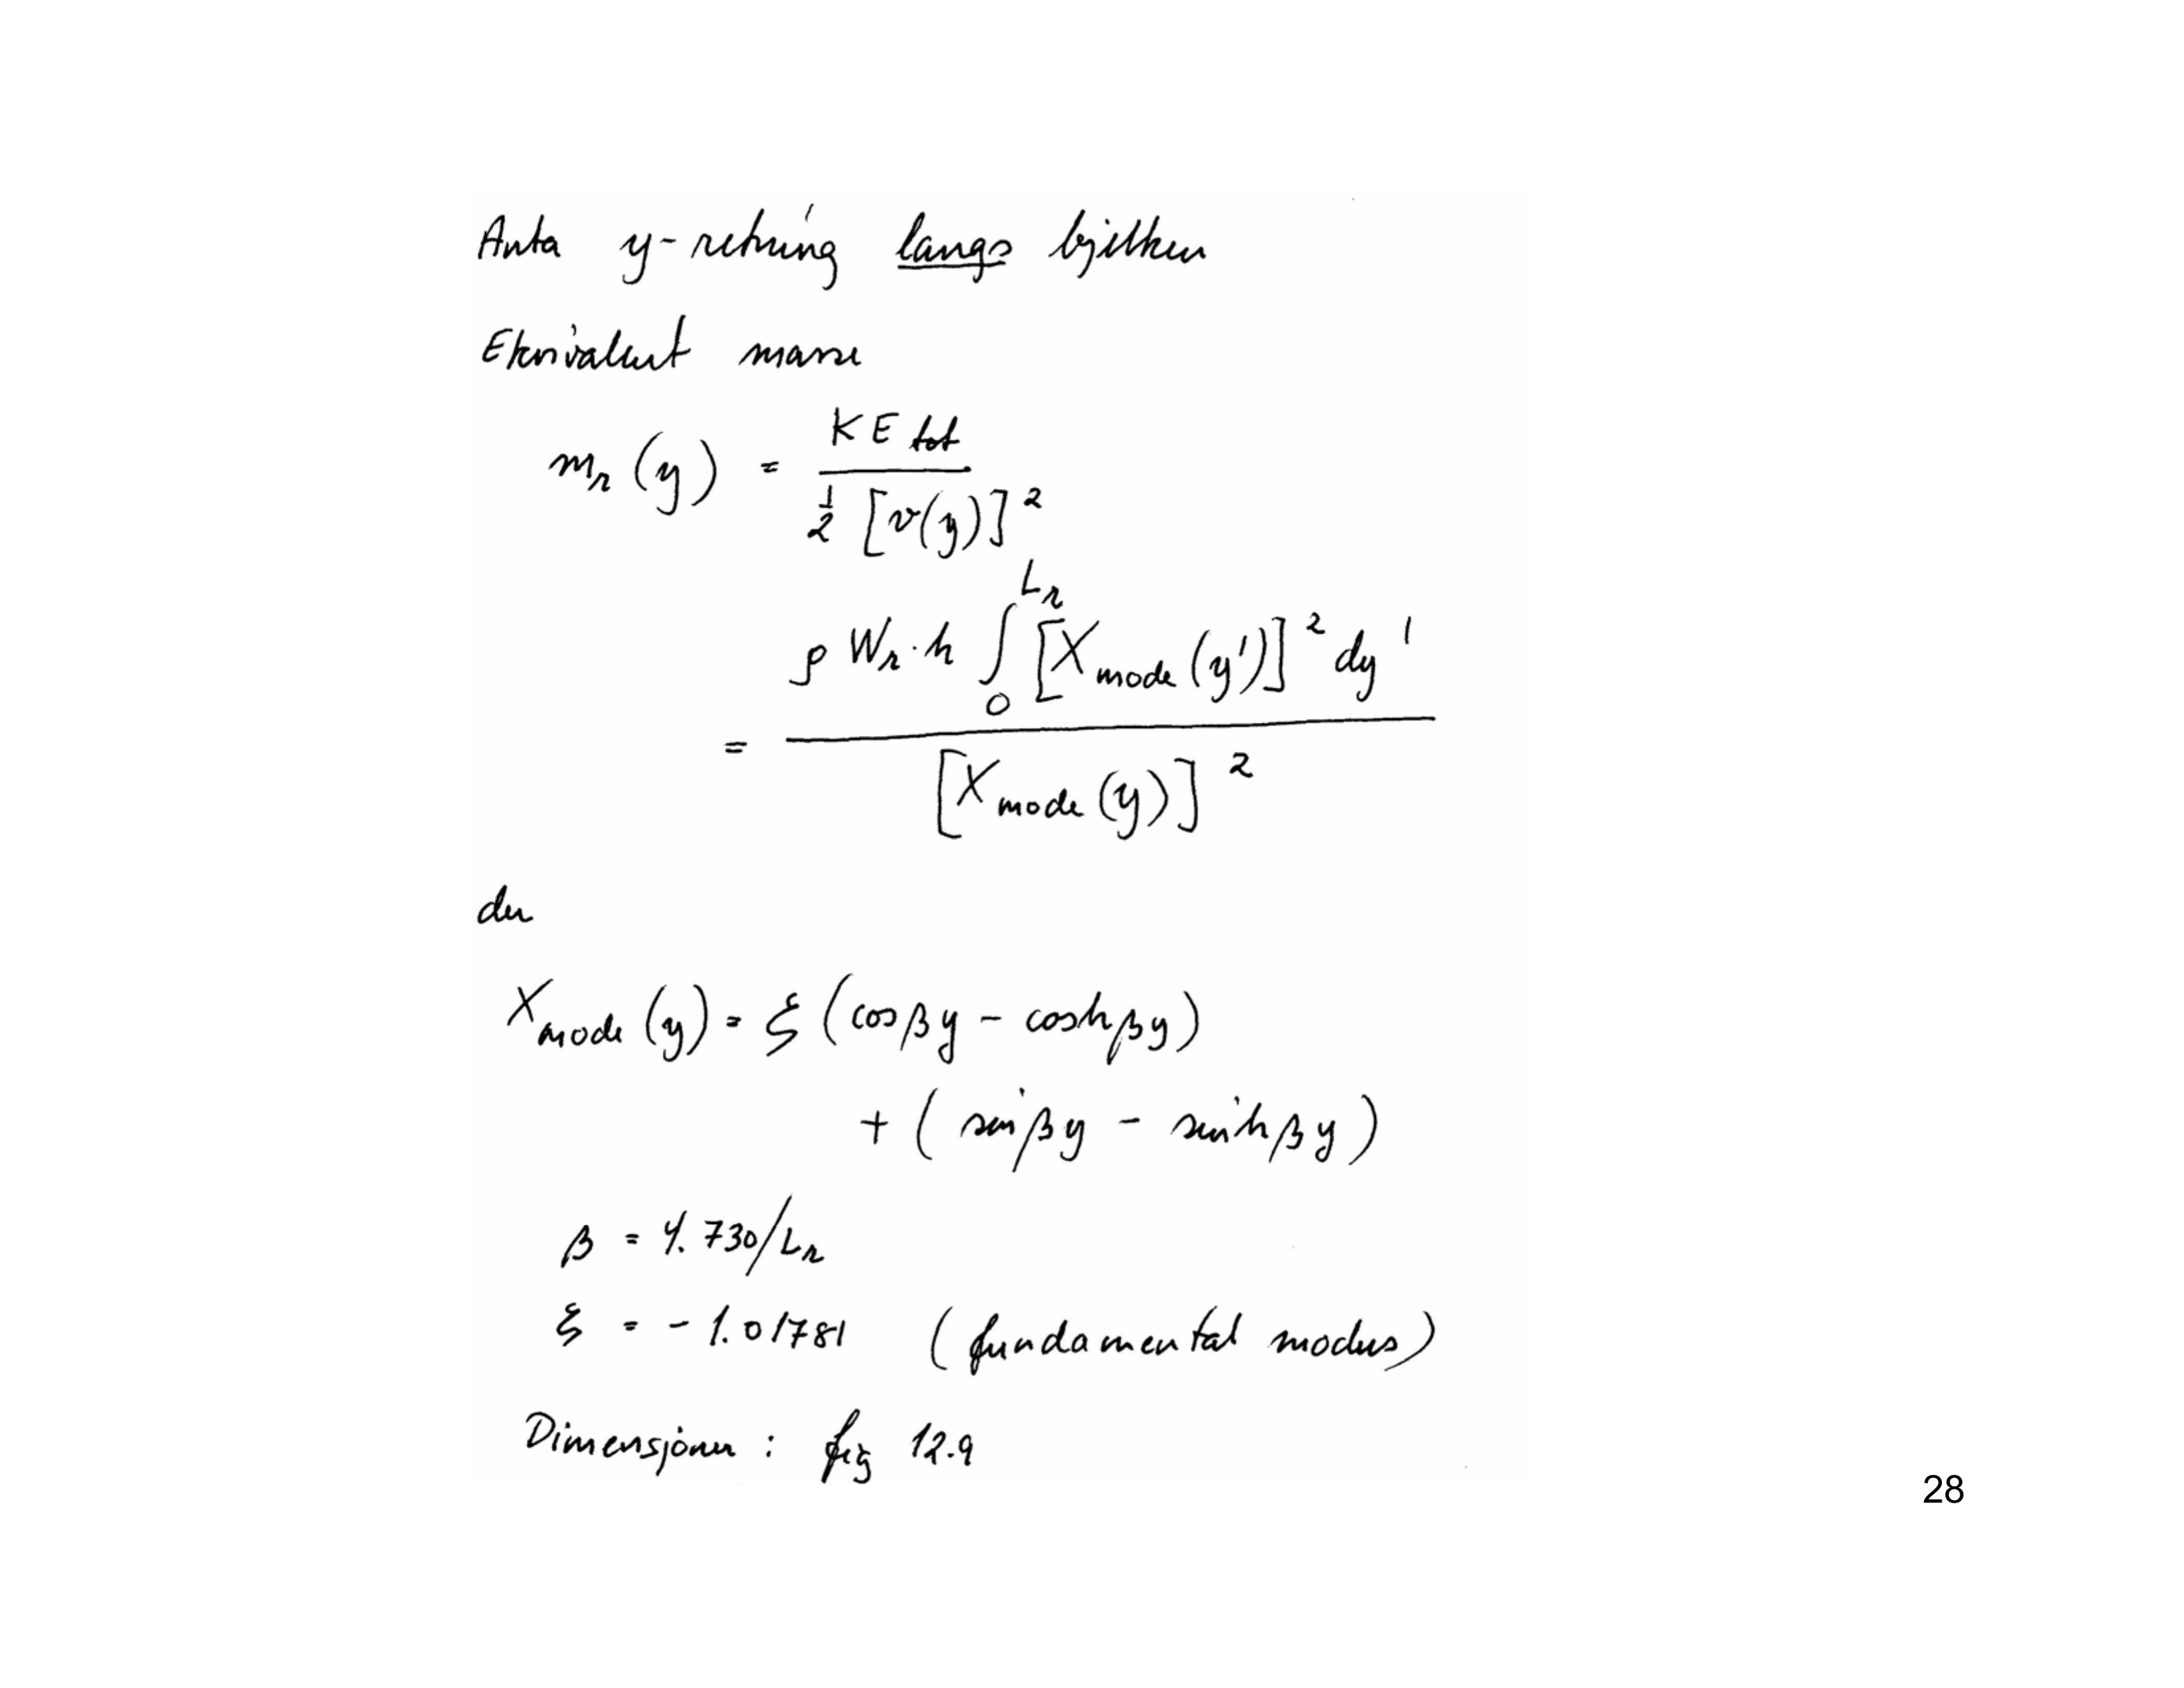 Anta y-retning langs bjelken
Ekvivalent masse
m_r (y) = KE tot / ½ [v(y)]²
= ρ W_r · h ∫₀^{L_r} [X_mode (y')]² dy' / [X_mode (y)]²
der
X_mode (y) = ξ (cos βy - cosh βy)
+ (sin βy - sinh βy)
β = 4.730/L_r
ξ = - 1.01781 (fundamental modus)
Dimensjoner : fig 12.9
28